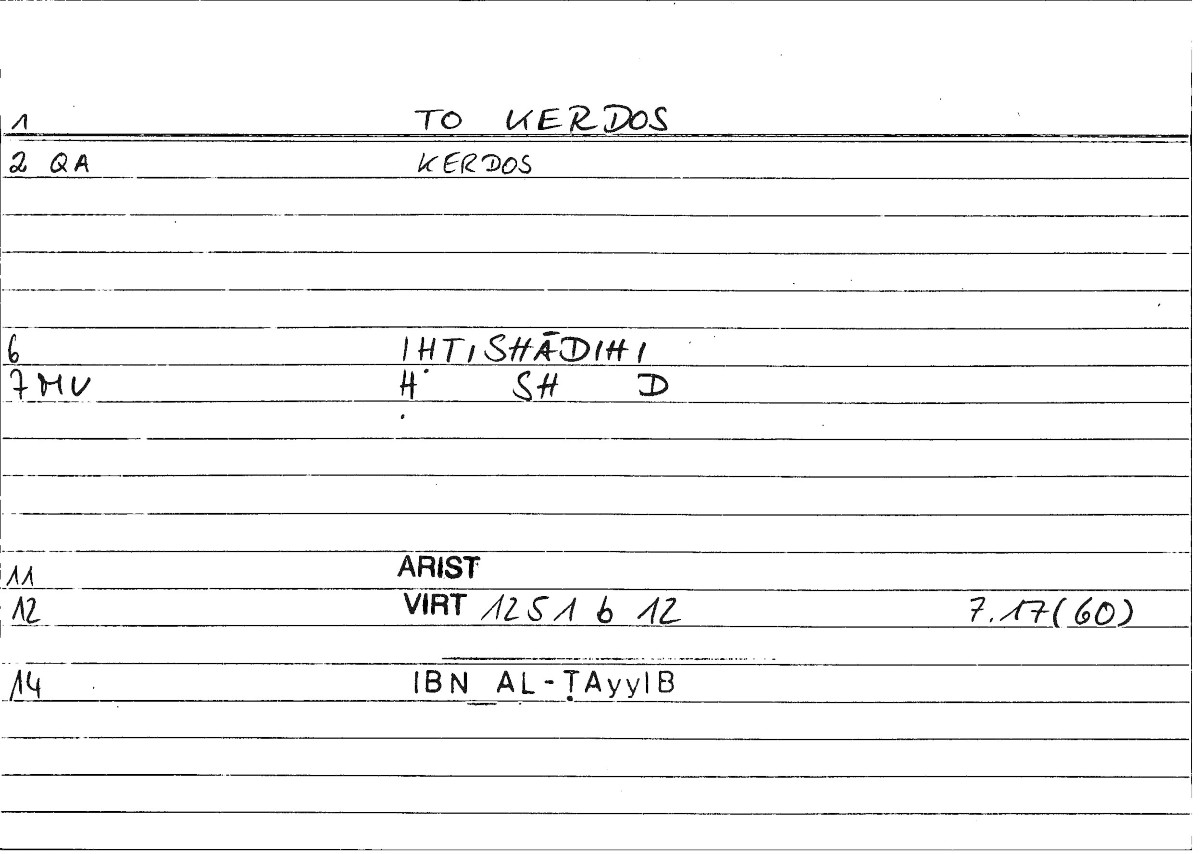 1 TO KERDOS
2 QA KERDOS
6 IḤTISHĀDIHI
7 MV Ḥ SH D
11 ARIST
12 VIRT 1251 b 12 7.17(60)
14 IBN AL-ṬAyyIB